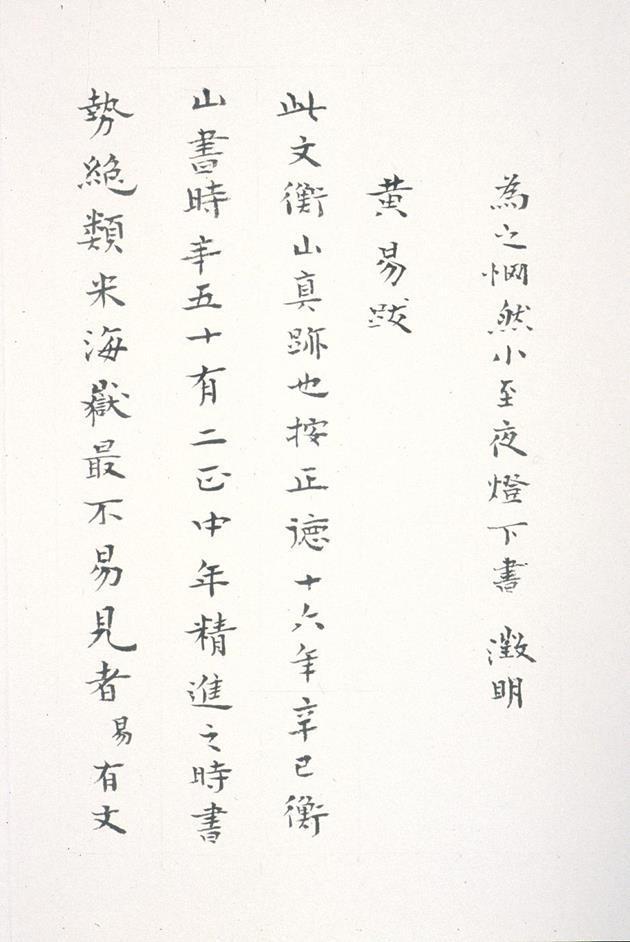 為之惘然小至夜燈下書 澂明
黃易跋
此文衡山真跡也按正德十六年辛巳衡
山書時年五十有二正中年精進之時書
勢絕類米海嶽最不易見者易有文